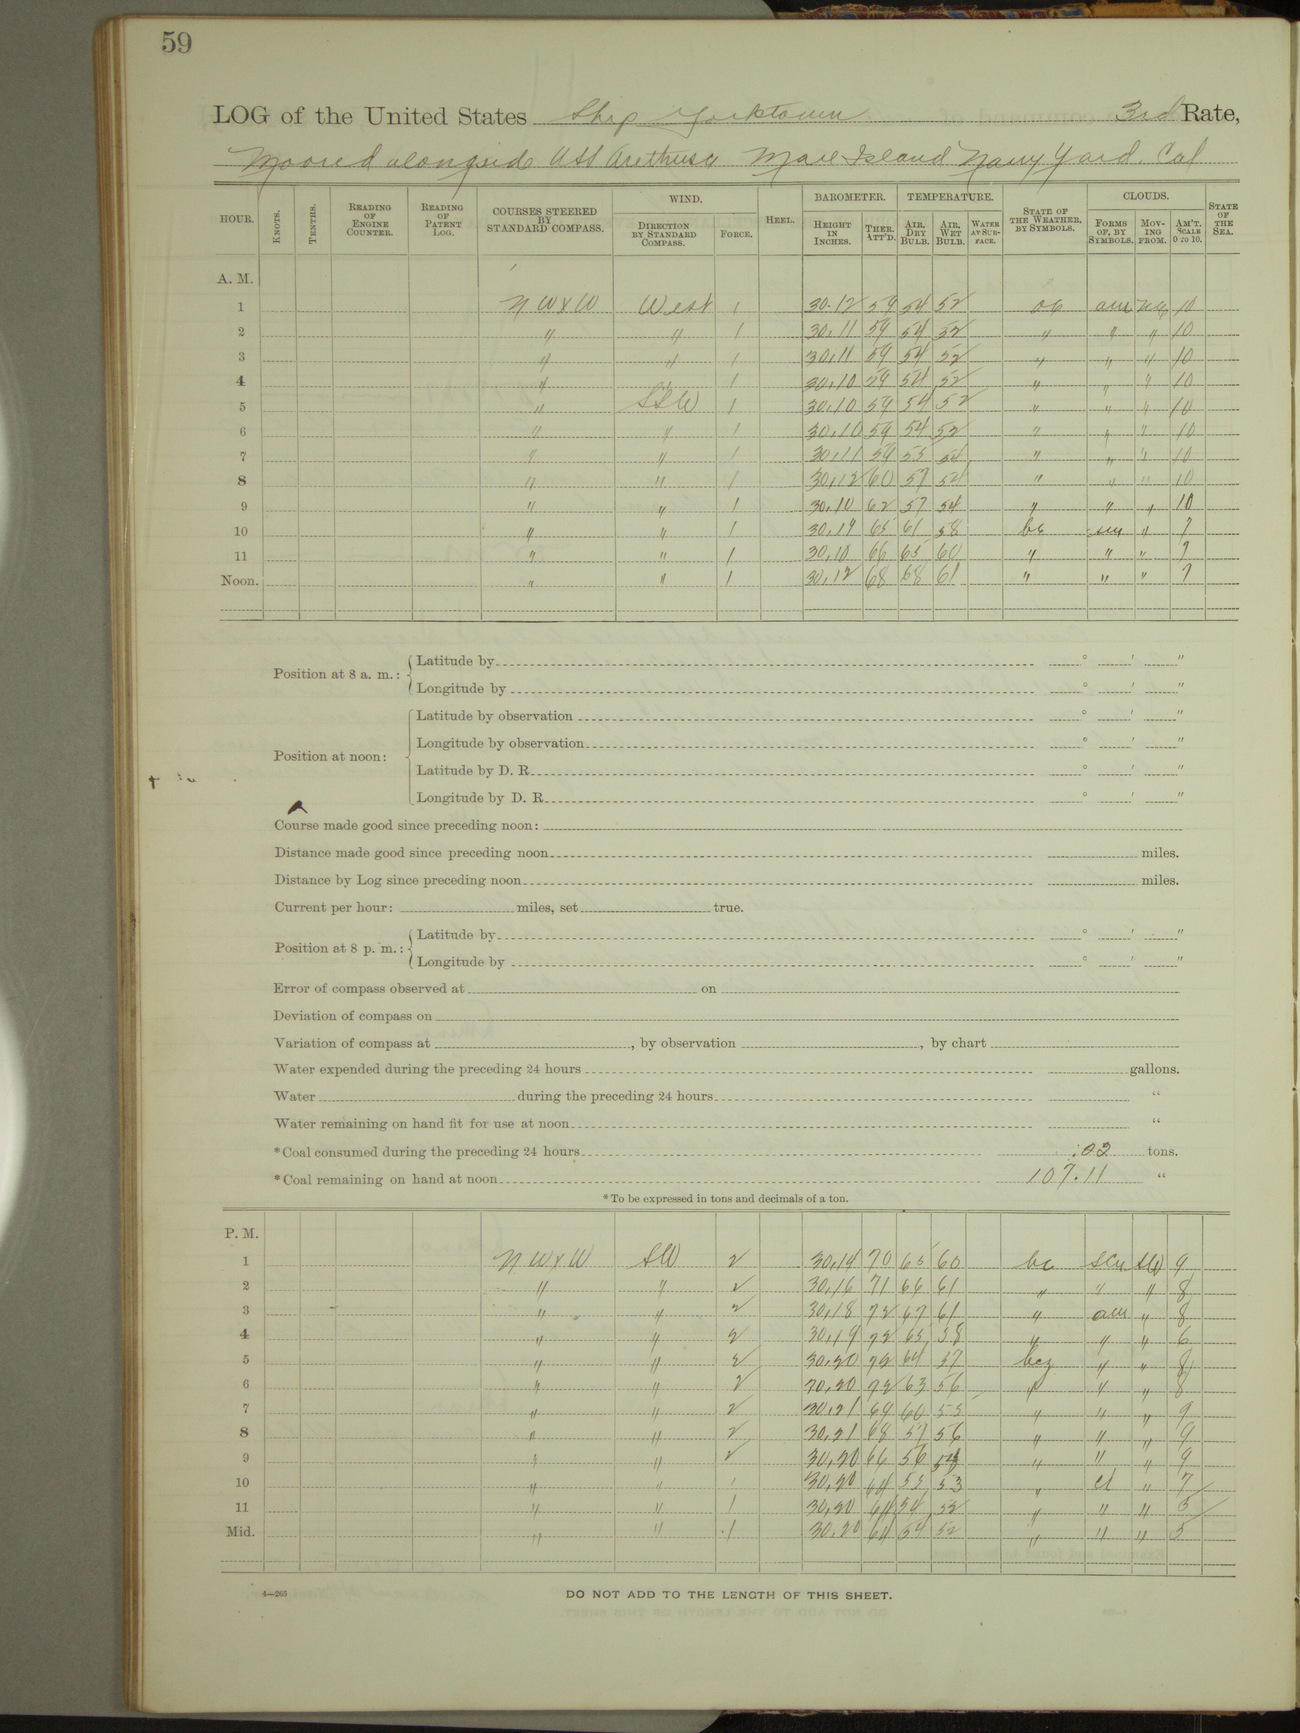 59
LOG of the United States Ship Yorktown 3rd Rate,
Moored alongside USS Arethusa Mare Island Navy Yard. Cal
HOUR. KNOTS. TENTHS. READING OF ENGINE COUNTER. READING OF PATENT LOG. COURSES STEERED BY STANDARD COMPASS. WIND. DIRECTION BY STANDARD COMPASS. FORCE. HEEL. BAROMETER. HEIGHT IN INCHES. THER. ATT'D. TEMPERATURE. AIR, DRY BULB. AIR, WET BULB. WATER AT SURFACE. STATE OF THE WEATHER, BY SYMBOLS. CLOUDS. FORMS OF, BY SYMBOLS. MOVING FROM. AM'T. SCALE 0 TO 10. STATE OF THE SEA.
A. M.
1 NWxW West 1 30.12 59 54 52 10
2 " " 1 30.11 59 54 52 " " " 10
3 " " 1 30.11 59 54 52 " " " 10
4 " " 1 30.10 59 54 52 " " " 10
5 " SSW 1 30.10 59 54 52 " " " 10
6 " " 1 30.10 59 54 52 " " " 10
7 " " 1 30.11 59 55 " " " 10
8 " " 1 30.12 60 57 54 " " " 10
9 " " 1 30.10 62 57 54 " " " 10
10 " " 1 30.14 65 61 58 bc " 7
11 " " 1 30.10 66 65 60 " " " 7
Noon. " " 1 30.12 68 68 61 " " " 7
Position at 8 a. m.: Latitude by ° ' "
Longitude by ° ' "
Position at noon: Latitude by observation ° ' "
Longitude by observation ° ' "
Latitude by D. R. ° ' "
Longitude by D. R. ° ' "
Course made good since preceding noon:
Distance made good since preceding noon miles.
Distance by Log since preceding noon miles.
Current per hour: miles, set true.
Position at 8 p. m.: Latitude by ° ' "
Longitude by ° ' "
Error of compass observed at on
Deviation of compass on
Variation of compass at , by observation , by chart
Water expended during the preceding 24 hours gallons.
Water during the preceding 24 hours "
Water remaining on hand fit for use at noon "
*Coal consumed during the preceding 24 hours .02 tons.
*Coal remaining on hand at noon 107.11 "
*To be expressed in tons and decimals of a ton.
P. M.
1 NWxW SW 2 30.14 70 65 60 bc SCu SW 9
2 " " 2 30.16 71 66 61 " " " 8
3 " " 2 30.18 72 67 61 " " 8
4 " " 2 30.19 72 65 58 " " " 6
5 " " 2 30.20 72 64 57 bcz " " 8
6 " " 2 30.20 72 63 56 " " " 8
7 " " 2 30.21 69 60 55 " " " 9
8 " " 2 30.21 68 57 56 " " " 9
9 " " 2 30.20 66 56 " " " 9
10 " " 1 30.20 64 55 53 " " 7
11 " " 1 30.20 64 54 52 " " " 5
Mid. " " 1 30.20 64 54 52 " " " 5
4—265
DO NOT ADD TO THE LENGTH OF THIS SHEET.